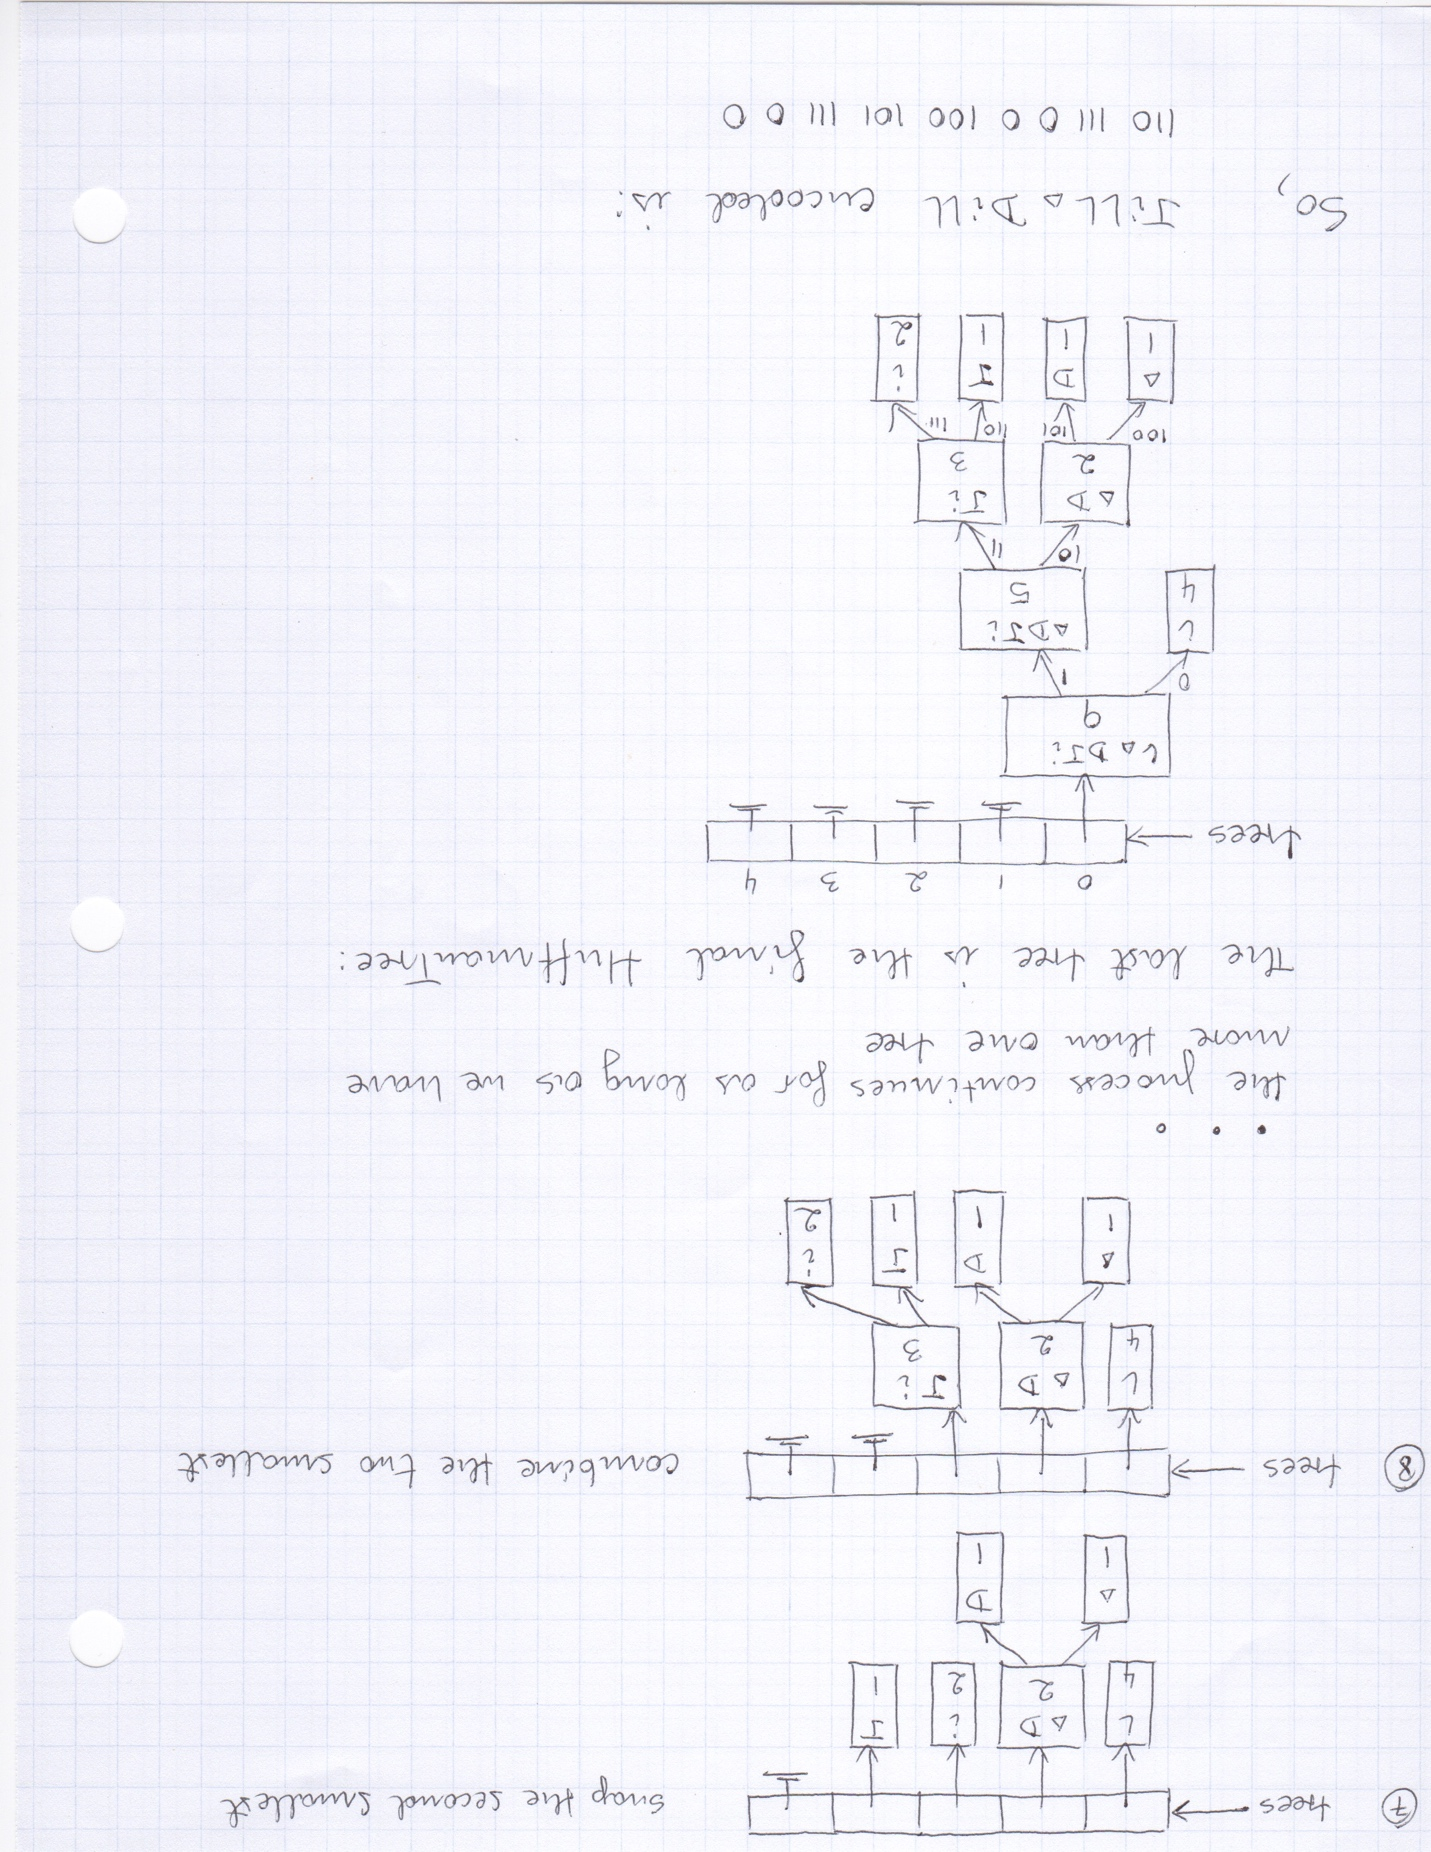 ⑦ trees swap the second smallest
L ΔD i J
4 2 2 1
Δ D
1 1
⑧ trees combine the two smallest
L ΔD Ji
4 2 3
Δ D J i
1 1 1 2
...
the process continues for as long as we have
more than one tree
The last tree is the final HuffmanTree:
0 1 2 3 4
trees
LΔDJi
9
0 1
L ΔDJi
4 5
10 11
ΔD Ji
2 3
100 101 110 111
Δ D J i
1 1 1 2
So, JiLLΔDiLL encoded is:
110 111 0 0 100 101 111 0 0